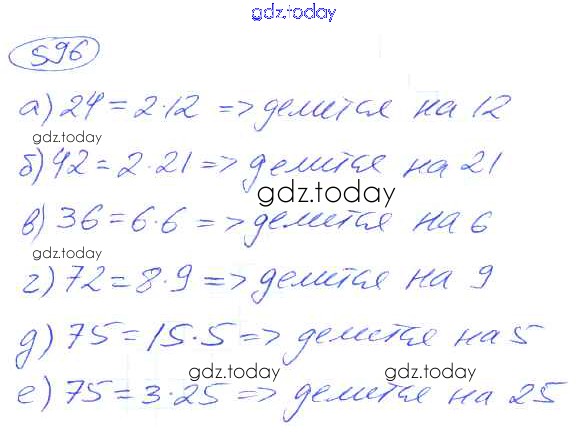 gdz.today
596
а) 24 = 2·12 => делится на 12
gdz.today
б) 42 = 2·21 => делится на 21
gdz.today
в) 36 = 6·6 => делится на 6
gdz.today
г) 72 = 8·9 => делится на 9
д) 75 = 15·5 => делится на 5
gdz.today
gdz.today
е) 75 = 3·25 => делится на 25